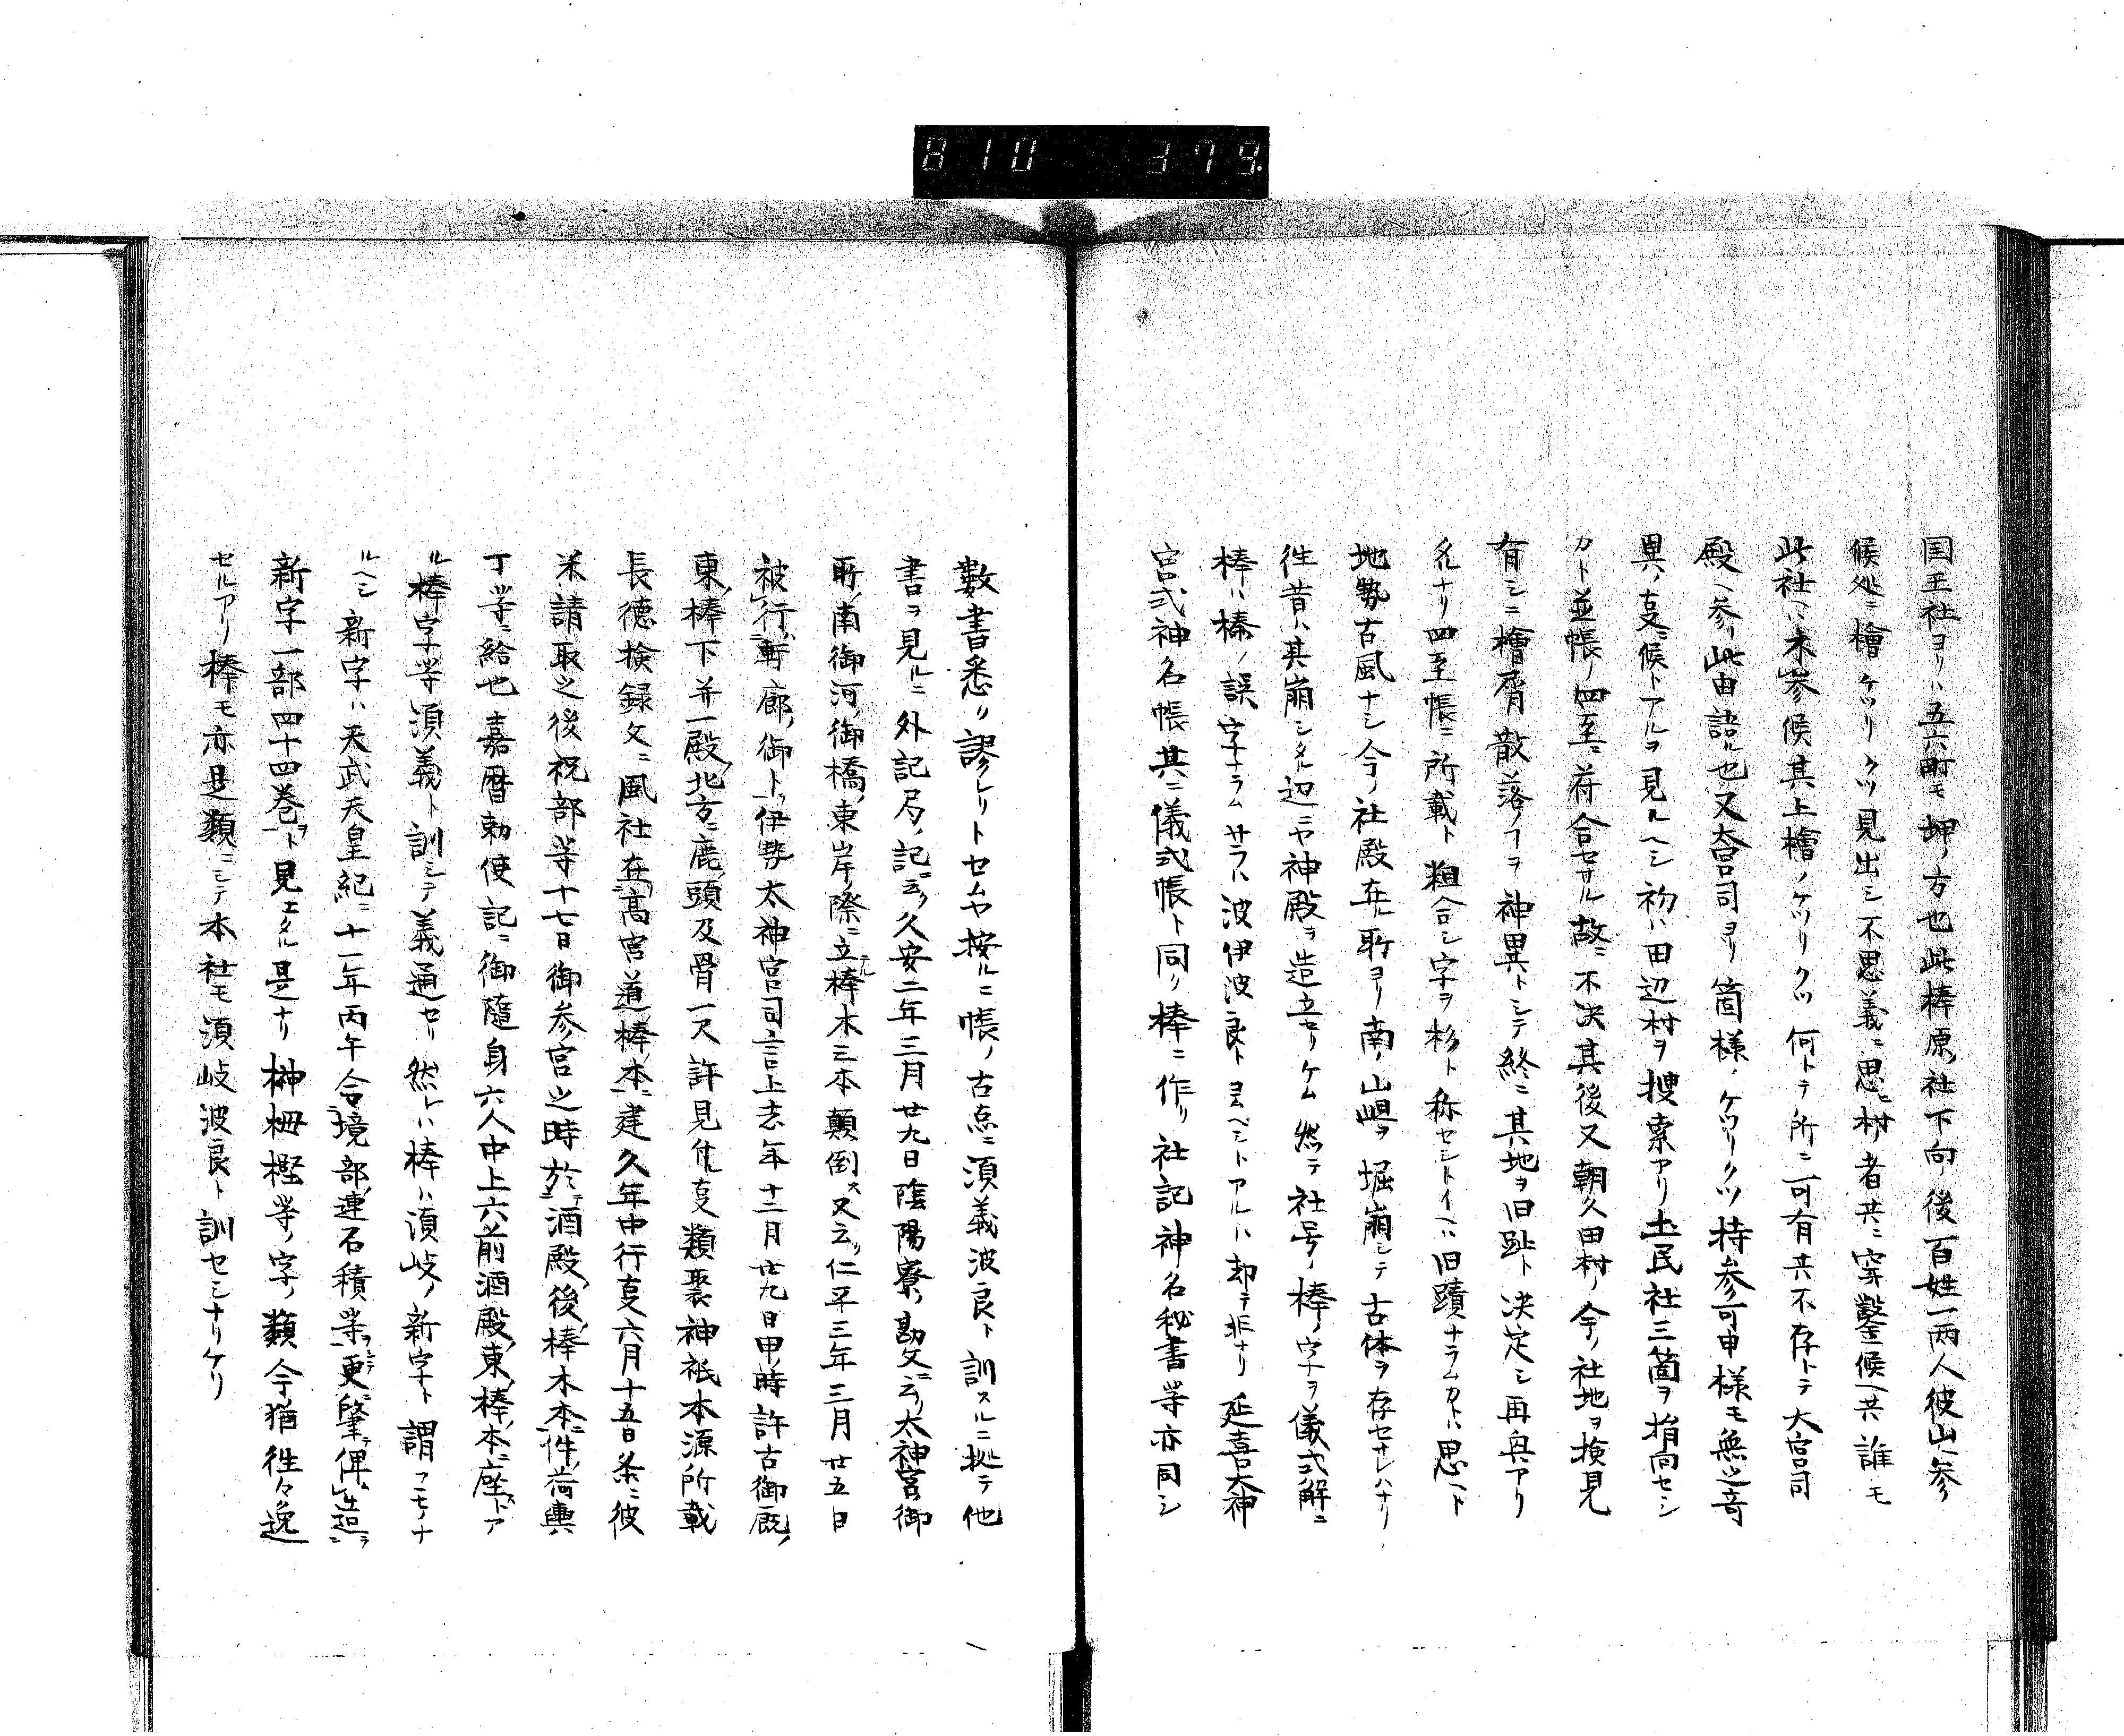 810 379.
国王社ヨリハ五六町モ坤ノ方也此棒原ノ社下向ノ後百姓一両人彼山ヘ参
候処ニ檜ケツリクツ見出シ不思義ニ思ヒ村ノ者共ニ穿鑿候ヘ共誰モ
此社ヘハ未参候其上檜ノケツリクツ何トテ所ニ可有共不存トテ大宮司
殿ヘ参リ此由語ル也又大宮司ヨリ箇様ノケツリクツ持参可申様モ無之奇
異ノ支ニ候トアルヲ見ルヘシ初ハ田辺村ヲ捜索アリ土民社三箇ヲ指向セシ
カト並帳ノ四至ニ荷合セサル故ニ不决其後又朝久田村ノ今ノ社地ヲ検見
有シニ檜屑散落ノフヲ神異トシテ終ニ其地ヲ旧趾ト决定シ再興アリ
タルナリ四至帳ニ所載ト粗合シ字ヲ杉ト称セシトイヘハ旧蹟ナラムカトハ思ヘト
地勢古風ナシ今ノ社殿在ル所ヨリ南ノ山ヲ堀崩シテ古体ヲ存セサレハナリ
往昔ハ其崩シタル辺ニヤ神殿ヲ造立セリケム然テ社号ノ棒ノ字ヲ儀式解ニ
棒ハ榛ノ誤字ナラムサラハ波伊波良トヨムベシトアルハ却テ非ナリ延喜大神
宮式神名帳其ニ儀式帳ト同リ棒ニ作リ社記神名秘書等亦同シ
數書悉リ謬レリトセムヤ按ルニ帳ノ古点ニ須義波良ト訓スルニ拠テ他
書ヲ見ルニ外記局ノ記ニ云ク久安二年三月廿九日陰陽寮ノ勘文ニ云ク太神宮ノ御
所ノ南御河ノ御橋ノ東岸ノ際ニ立ル棒木三本顛倒ス又云リ仁平三年三月廿五日
被行軒廊ノ御卜ヲ伊勢太神宮司言上去年十二月廿九日申ノ時許古御厩ノ
東ノ棒下并一殿ノ北方ニ鹿ノ頭及骨一尺許見付ル支類聚神祇本源所載
長徳検録文ニ風社在高宮道ノ棒ノ本ニ建久年中行支六月十五日条ニ彼
米請取之後祝部等十七日御参宮之時於テ酒殿ノ後ノ棒木本ニ件ノ荷輿
丁等ニ給也嘉暦勅使記ニ御隨身六人中上六前酒殿ノ東ノ棒ノ本ニ座ストア
ル棒字等須義ト訓シテ義通セリ然レハ棒ハ須岐ノ新字ト謂フモノナ
ルヘシ新字ハ天武天皇紀ニ十一年丙午令境部ノ連石積等ヲシテ更ニ肇テ俾造ラ
新字一部四十四巻ヲト見エタル是ナリ榊栂樫等ノ字ノ類今猶往々逸
セルアリ棒モ亦是類ニシテ本社モ須岐波良ト訓セシナリケリ